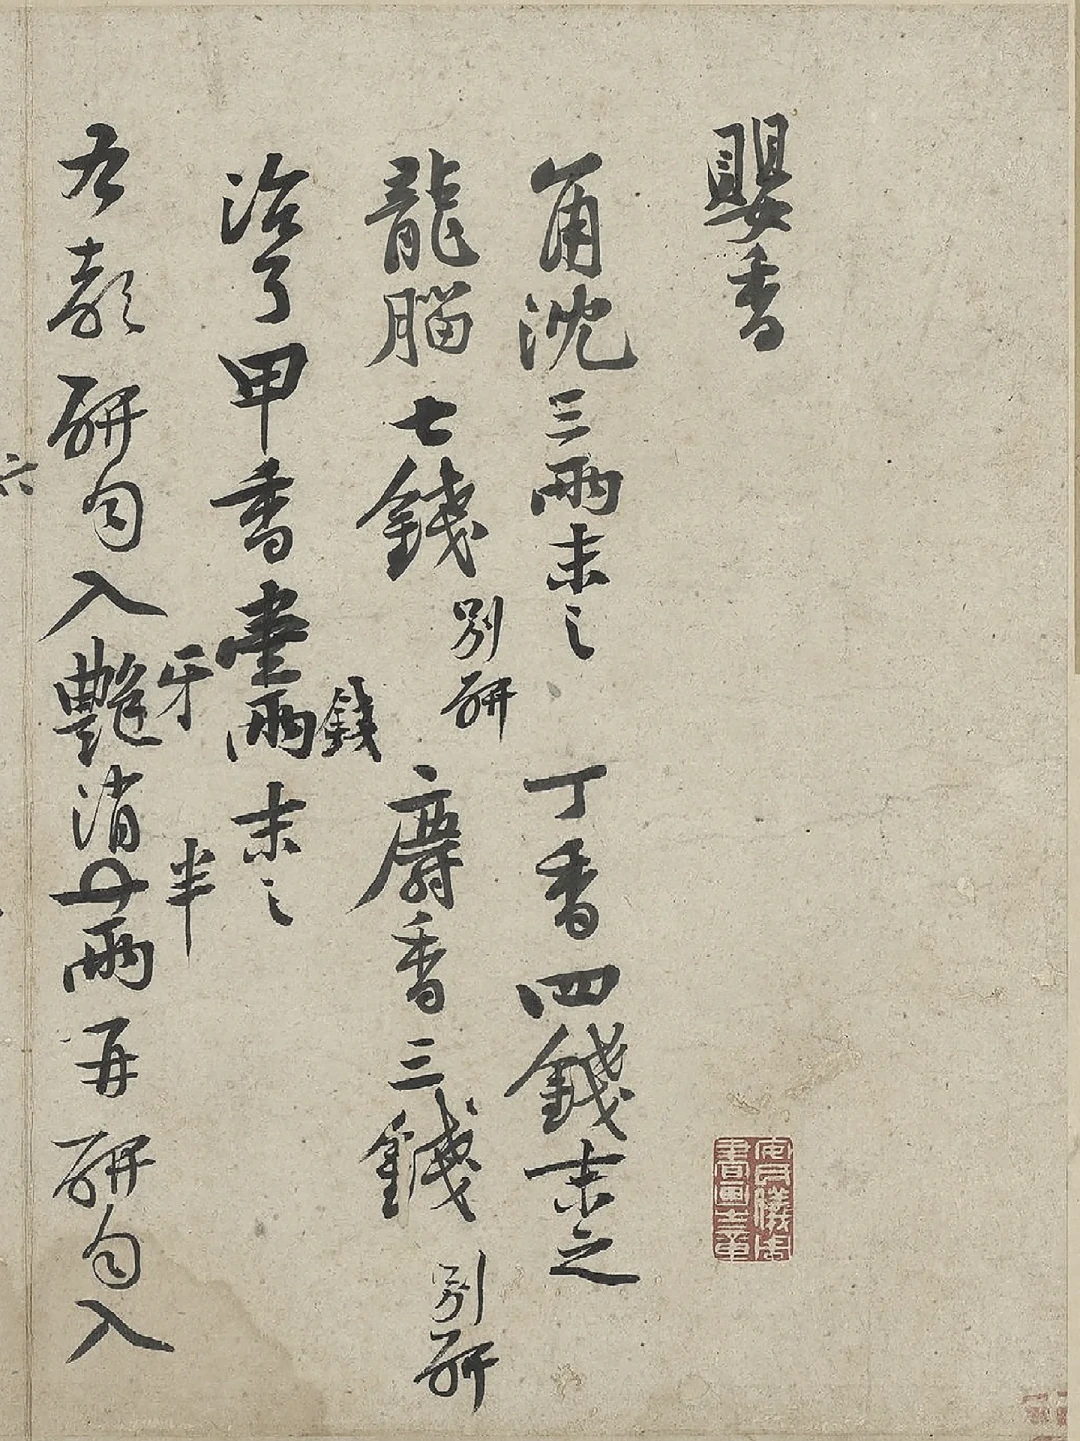 嬰香
角沈三兩末之 丁香四錢末之
龍腦七錢別研 麝香三錢別研
治了甲香壹兩錢末之
右都研勻入艷消半兩再研勻入
牙 半
六
安氏儀周書畫之章